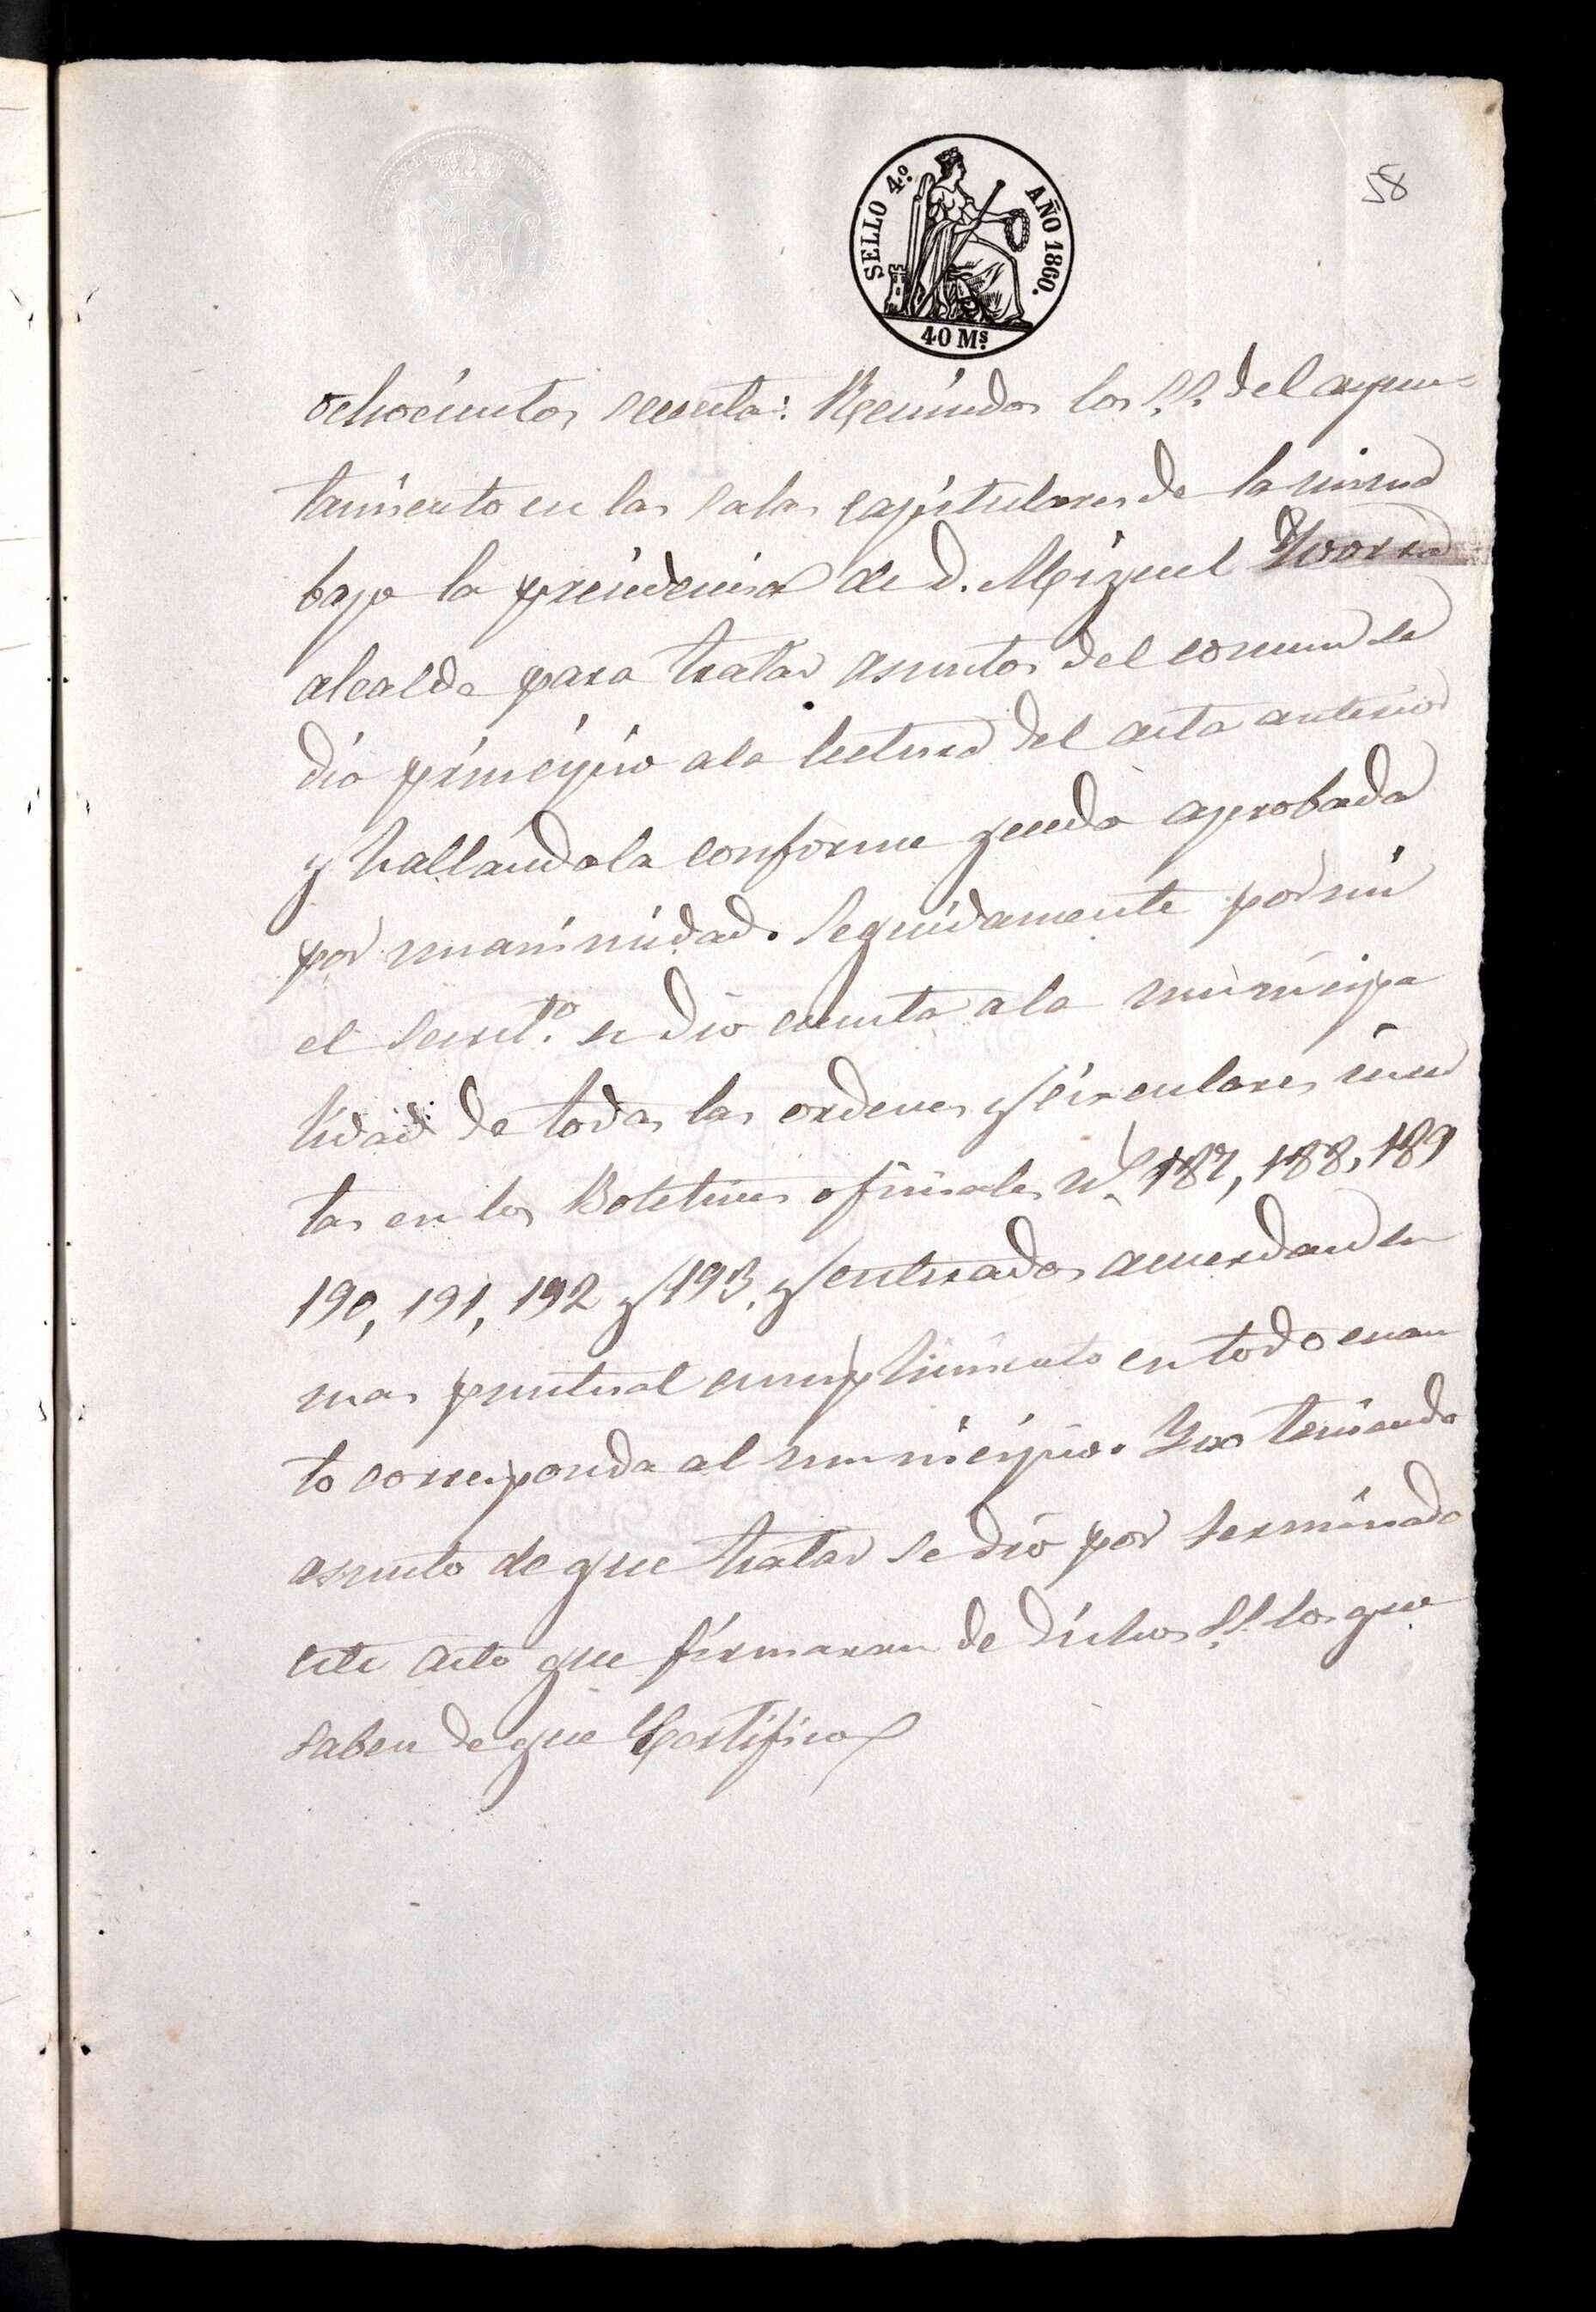 58
SELLO 4.º AÑO 1860.
40 Ms
ochocientos sesenta: Reunidos los S.S. del ayun=
tamiento en las salas capitulares de la misma
bajo la presidencia de D. Miguel Yvorra
alcalde para tratar asuntos del comun se
dió principio a la lectura del acta anterior
y hallandola conforme quedó aprobada
por unanimidad. Seguidamente por mi
el Secret.º se dio cuenta a la municipa
lidad de todas las ordenes y circulares incer
tas en los Boletines oficiales n.s 187, 188, 189
190, 191, 192 y 193. y enterados acuerdan su
mas puntual cumplimiento en todo cuan
to corresponda al municipio. Y no teniendo
asunto de que tratar se dió por terminado
este acto que firmaran de dichos S.S. los que
saben de que Certifico